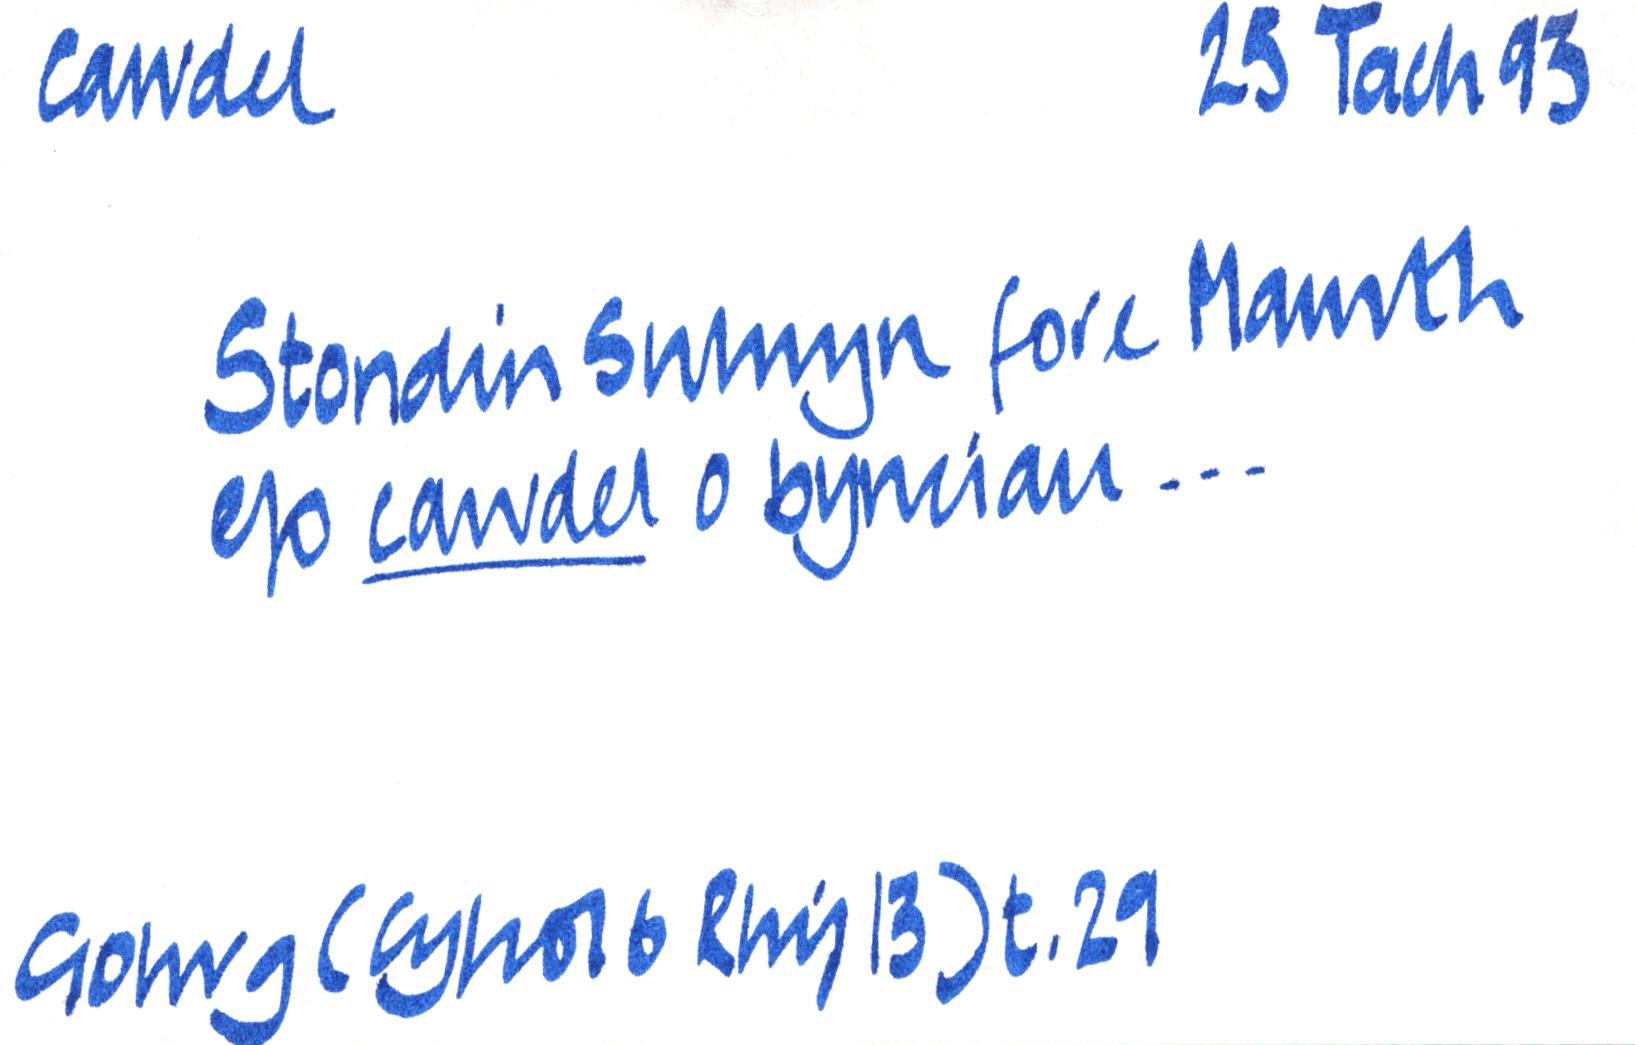 cawdel 25 Tach 93
Stondin Sulwyn fore Mawrth
e/o cawdel o bynciau ---
Golwg (Cyfrol 6 Rhif 13) t. 29